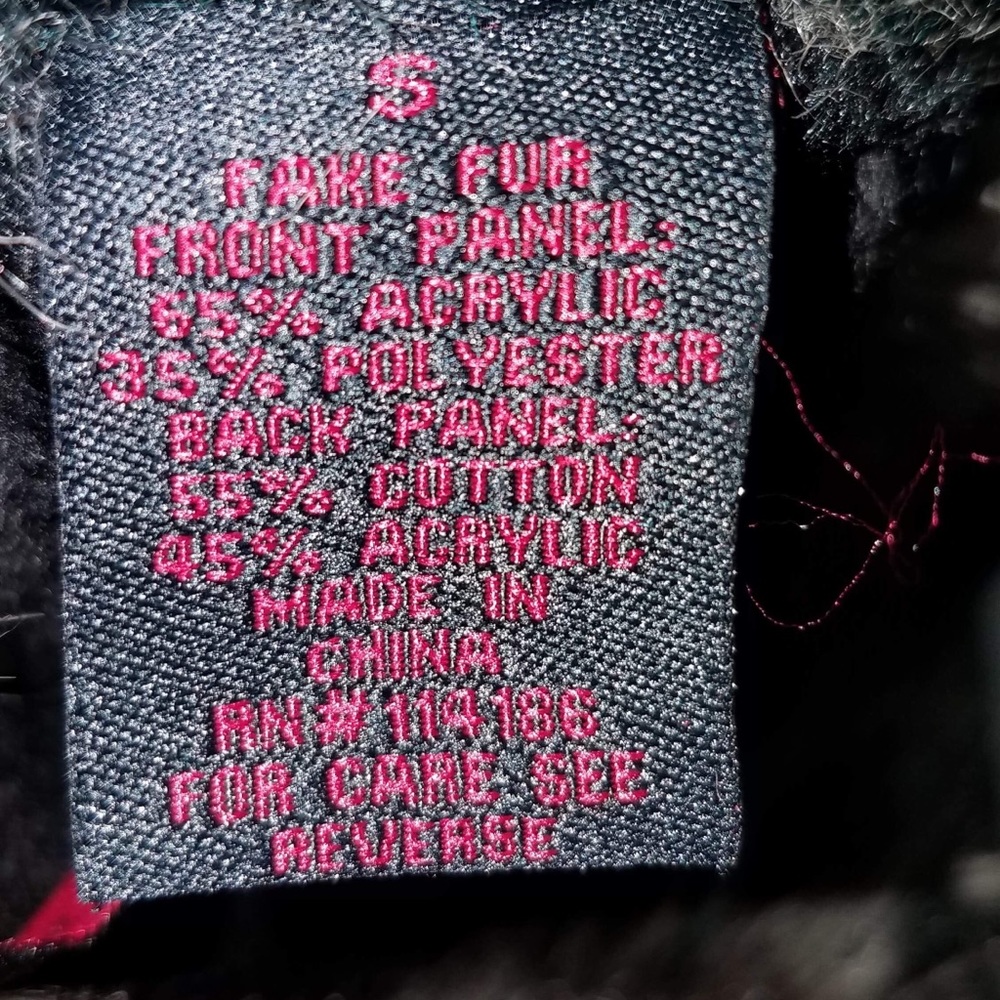 S
FAKE FUR
FRONT PANEL:
65% ACRYLIC
35% POLYESTER
BACK PANEL:
55% COTTON
45% ACRYLIC
MADE IN
CHINA
RN#114186
FOR CARE SEE
REVERSE